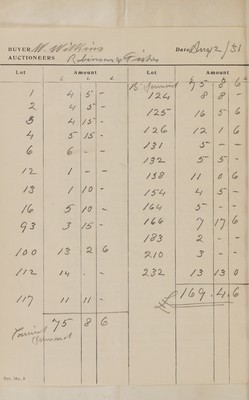 BUYER W. Watkins Date Aug 2/31
AUCTIONEERS Robinson & Fisher
Lot Amount Lot Amount
£ s. d. £ s. d.
Bt Forward 75 8 6
1 4 5 - 124 8 8 -
2 4 5 - 125 16 5 6
3 4 15 - 126 12 1 6
4 5 15 - 131 5 - -
6 6 - - 132 5 5 -
12 1 - - 138 11 0 6
13 1 10 - 154 4 5 -
16 5 10 - 164 5 - -
93 3 15 - 166 7 17 6
183 2 - -
100 13 2 6 210 3 - -
112 14 . - 232 13 13 0
117 11 11 - £169.4.6
Carried forward 75 8 6